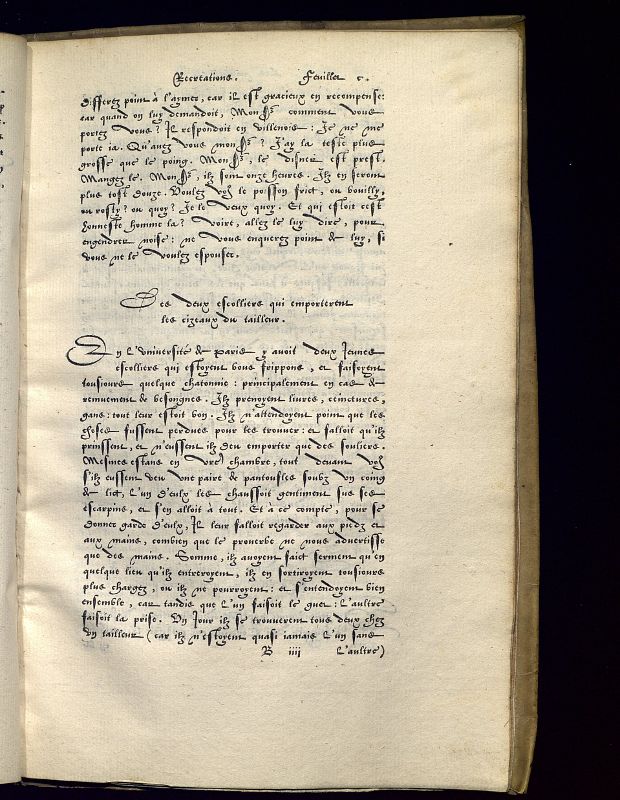 Recreations. Feuillet c.
differez point à l'aymer, car il est gracieux en recompense:
car quand on luy demandoit, Monsr comment vous
portez vous? Il respondoit en villenois: Je ne me
porte ia. Qu'avez vous monsr? J'ay la teste plus
grosse que le poing. Monsr, le disner est prest.
Mangez le. Monsr, ilz sont onze heures. Ilz en seront
plus tost douze. Voulez voz le poisson frict, ou bouilly,
ou rosty? ou quoy? Je le veux quoy. Et qui estoit cest
honneste homme la? voire, allez le luy dire, pour
engendrer noise: ne vous enquerez point de luy, si
vous ne le voulez espouser.
Des deux escolliers qui emporterent
les cizeaux du tailleur.
En l'Université de Paris y avoit deux Jeunes
escolliers qui estoyent bons frippons, et faisoyent
tousiours quelque chatonnie: principalement en cas de
remuement de besongnes. Ilz prenoyent livres, ceinctures,
gans: tout leur estoit bon. Ilz n'attendoyent point que les
choses fussent perdues pour les trouver: et falloit qu'ilz
prinssent, et n'eussent ilz deu emporter que des souliers.
Mesmes estans en vre chambre, tout devant voz
s'ilz eussent veu une paire de pantoufles soubz un coing
de lict, l'un d'eulx les chaussoit gentiment sur ses
escarpins, et s'en alloit à tout. Et à ce compte, pour se
donner garde d'eulx, Il leur falloit regarder aux piedz et
aux mains, combien que le proverbe ne nous advertisse
que des mains. Somme, ilz avoyent faict serment qu'en
quelque lieu qu'ilz entreroyent, ilz en sortiroyent tousiours
plus chargez, ou ilz ne pourroyent: et s'entendoyent bien
ensemble, car tandis que l'un faisoit le guet: l'aultre
faisoit la prise. Un Jour ilz se trouverent tous deux chez
un tailleur (car ilz n'estoyent quasi iamais l'un sans
B iiii l'aultre)